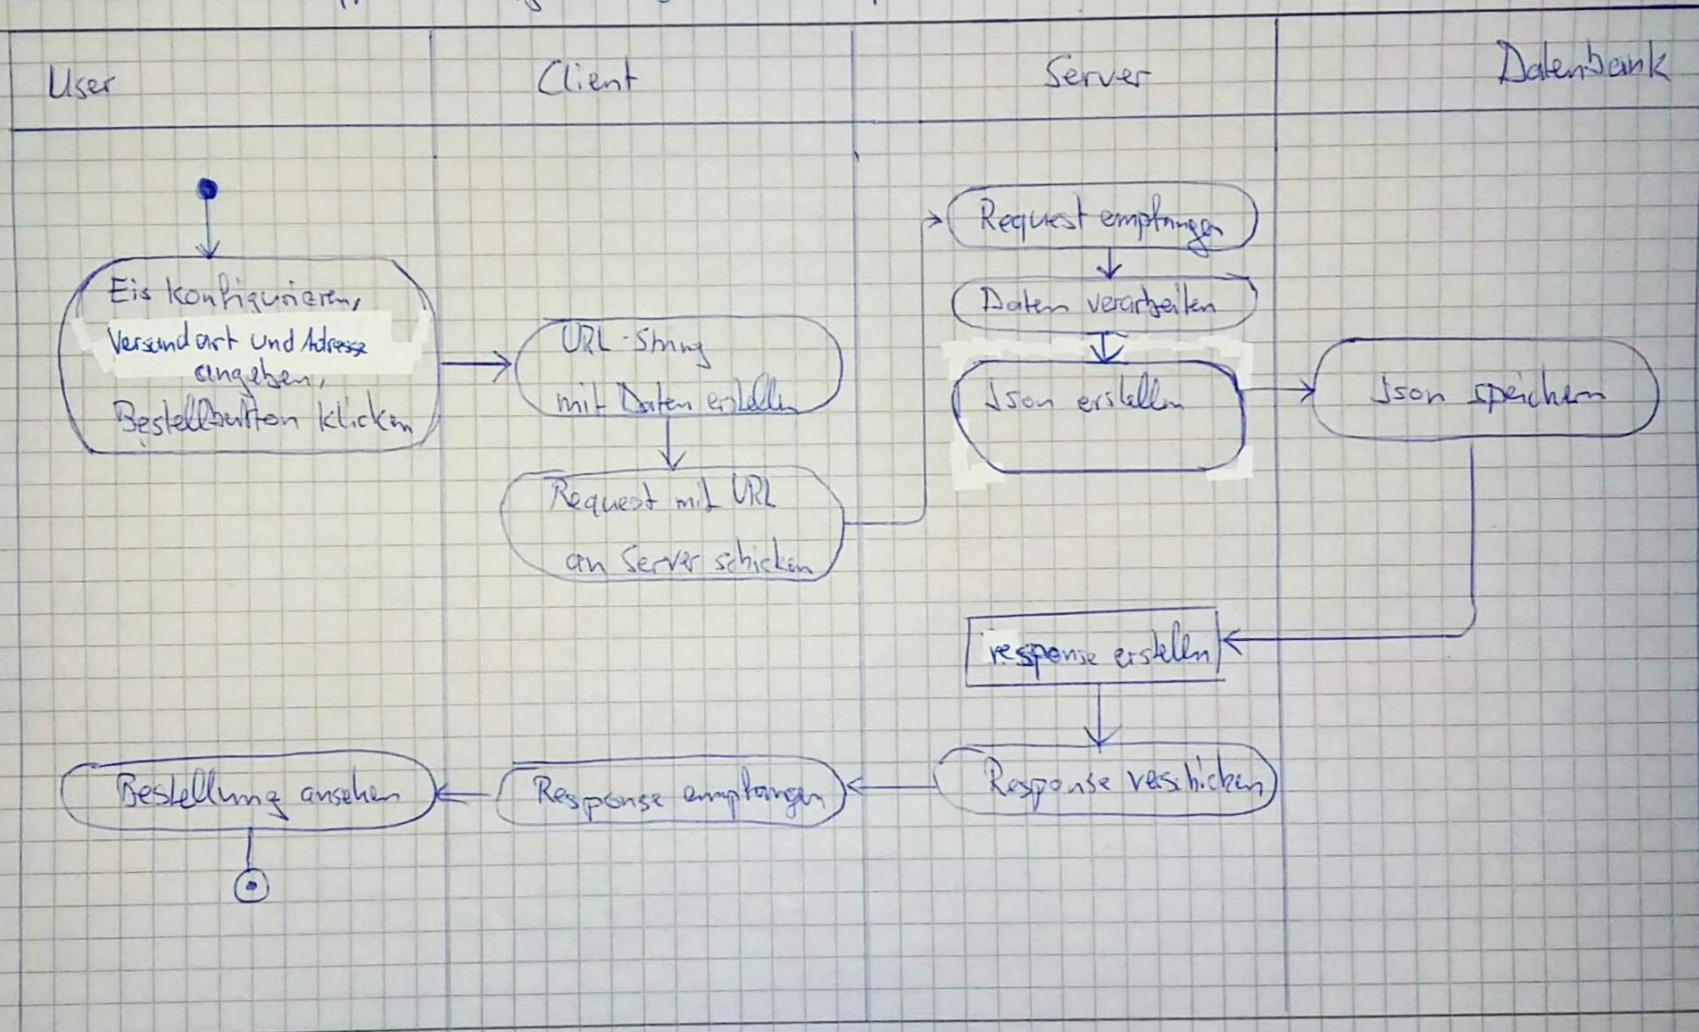 User
Client
Server
Datenbank
Eis konfigurieren,
Versandart und Adresse
angeben,
Bestellbutton klicken
URL-String
mit Daten erstellen
Request mit URL
an Server schicken
Request empfangen
Daten verarbeiten
Json erstellen
Json speichern
response erstellen
Response verschicken
Response empfangen
Bestellung ansehen